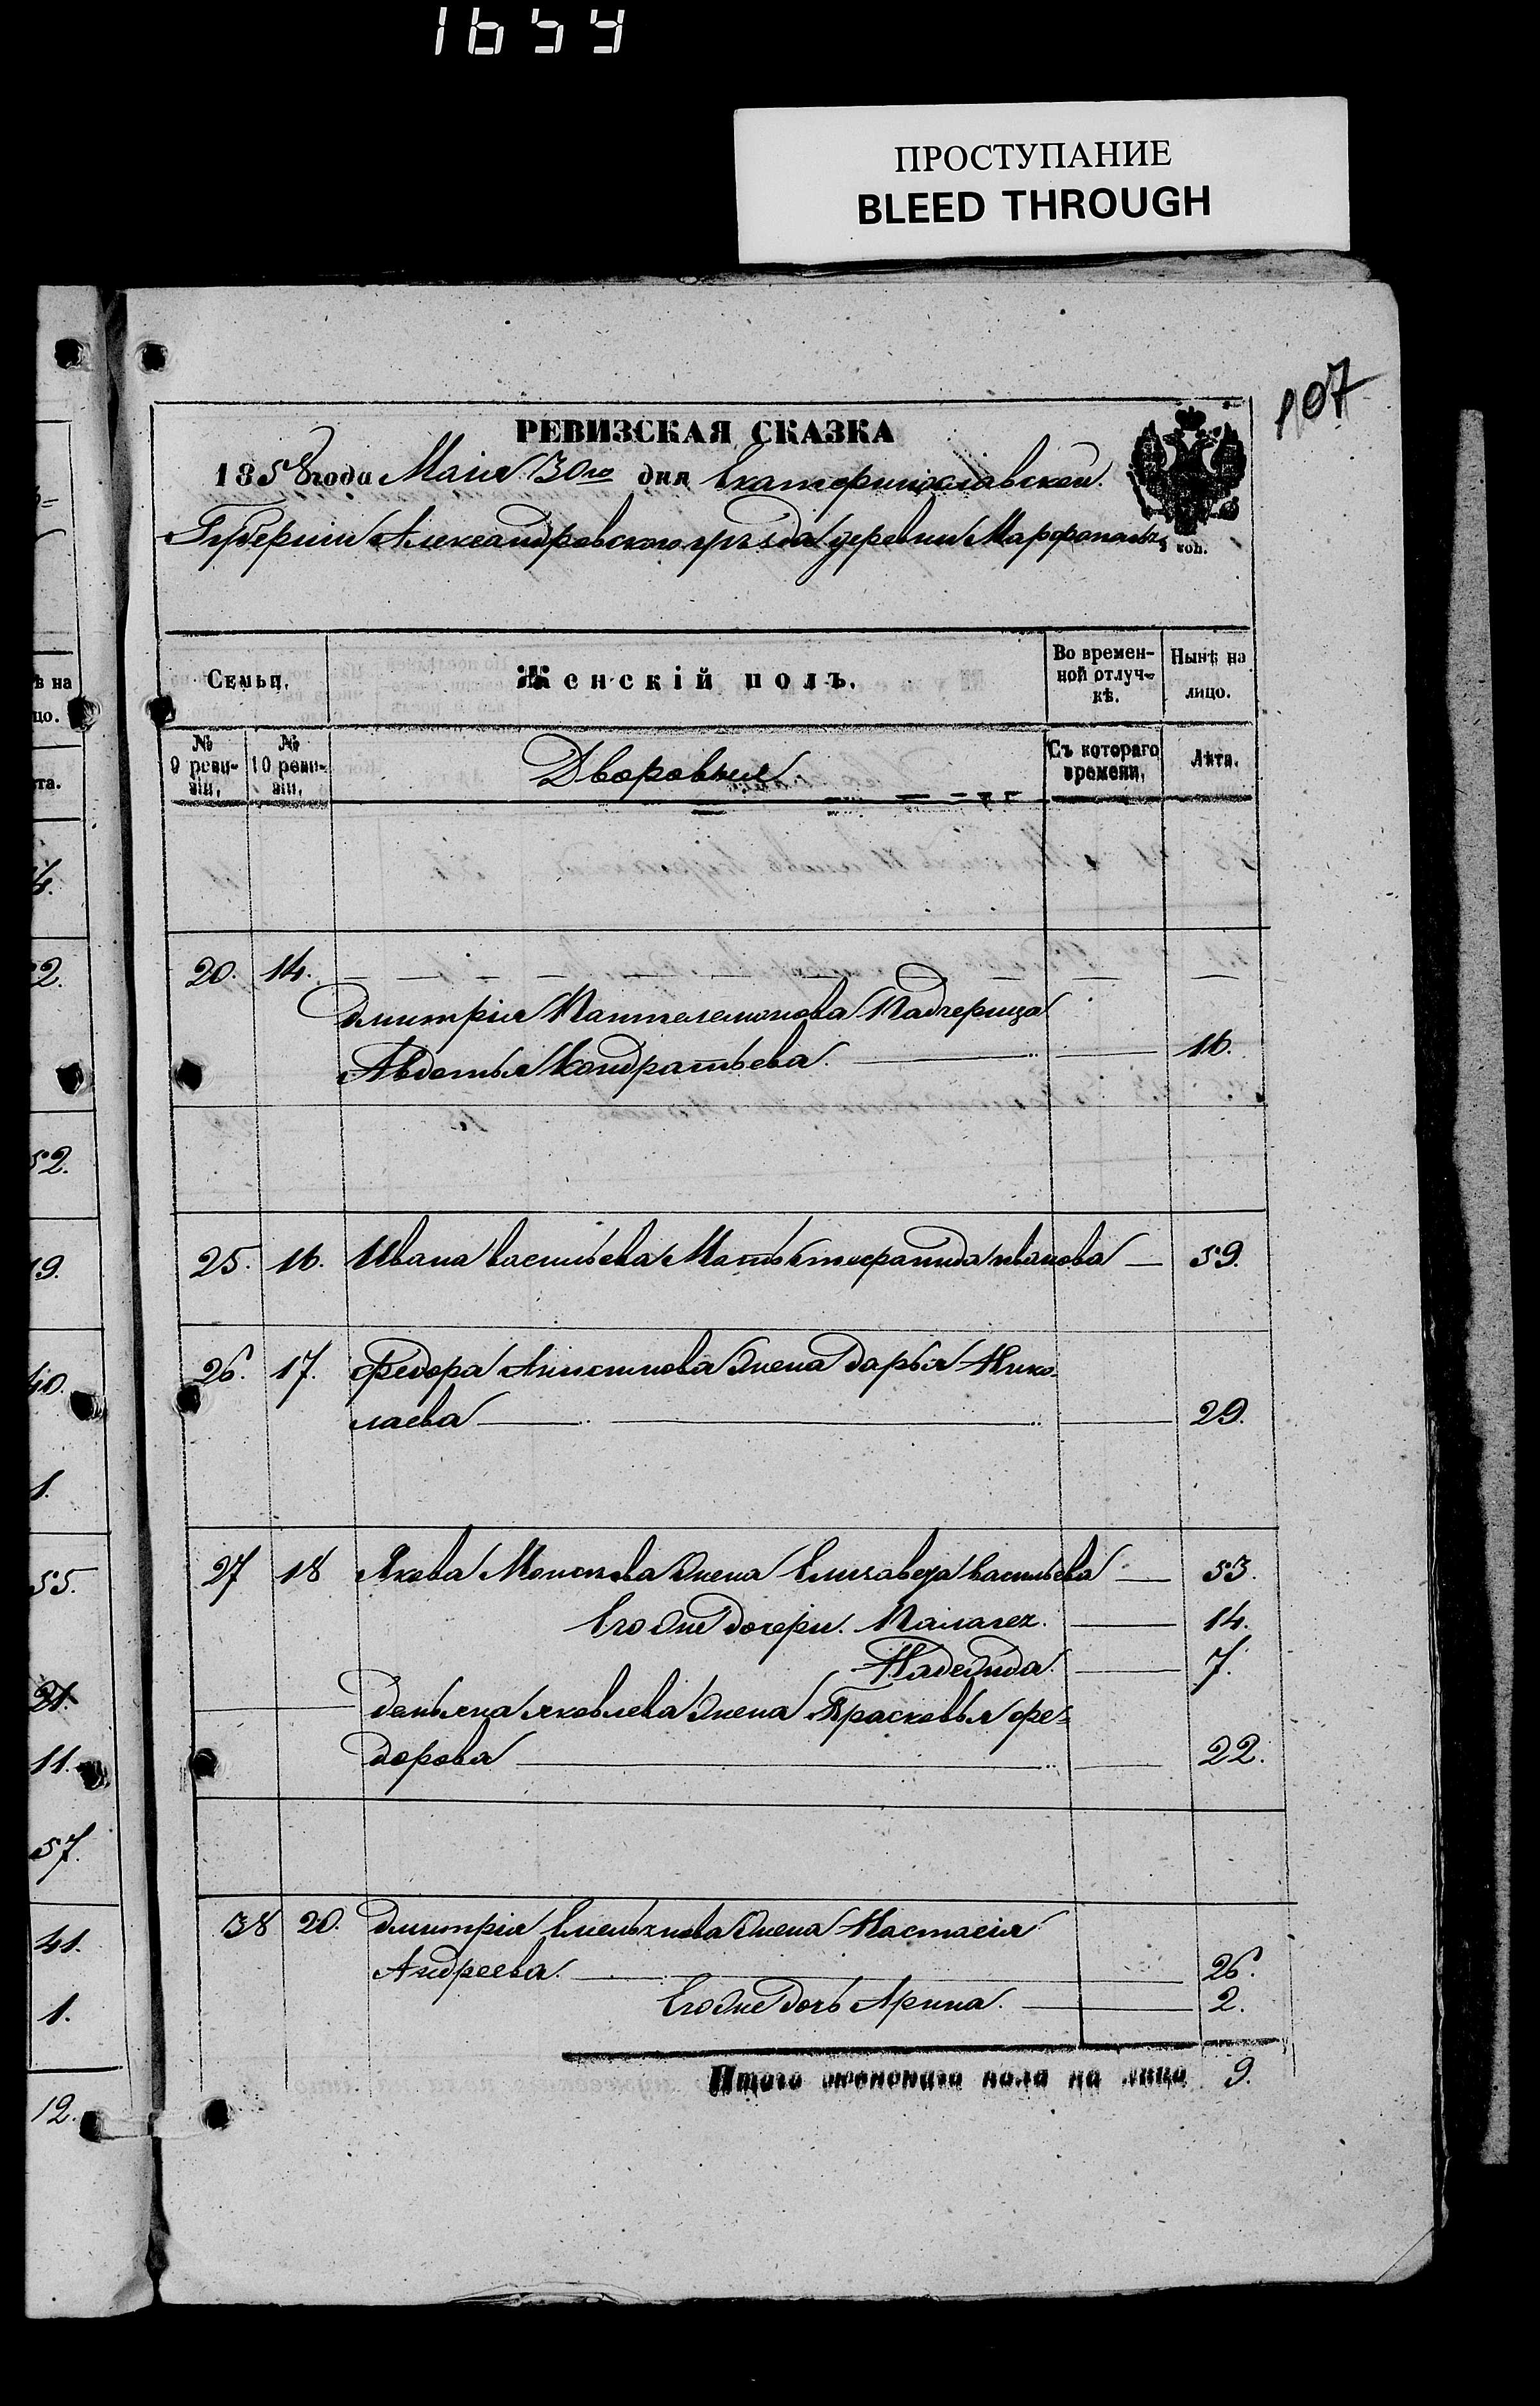 1654
ПРОСТУПАНИЕ
BLEED THROUGH
107
РЕВИЗСКАЯ СКАЗКА
1858 года Маія 30го дня Екатеринославской
Губерніи Александровского уѣзда деревни Марфополь
коп.
Семьи.
Женскій полъ.
Во времен-
ной отлуч-
кѣ.
Нынѣ на
лицо.
№
9 реви-
зіи.
№
10 реви-
зіи.
Дворовыя
Съ котораго
времени.
Лѣта.
20. 14.
Дмитрія Пантелемонова Падчерица
Авдотья Кондратьева. 16.
25. 16. Ивана Васильева Мать Иванова 59.
26. 17. Федора Жена Дарья Нико-
лаева 29.
27 18 Якова Жена Елизавета Васильева 53.
Его же дочери. Палагея. 14.
Надежда. 7.
Демьяна Яковлева Жена Прасковья Фе=
дорова 22.
38 20. Дмитрія Емельянова Жена Настасія
Андреева. 26.
Его же дочь Арина. 2.
Итого женскаго пола на лицо 9.
ѣ на
цо.
та.
4.
2.
52.
19.
40.
1.
55.
21.
11.
57.
41.
1.
12.